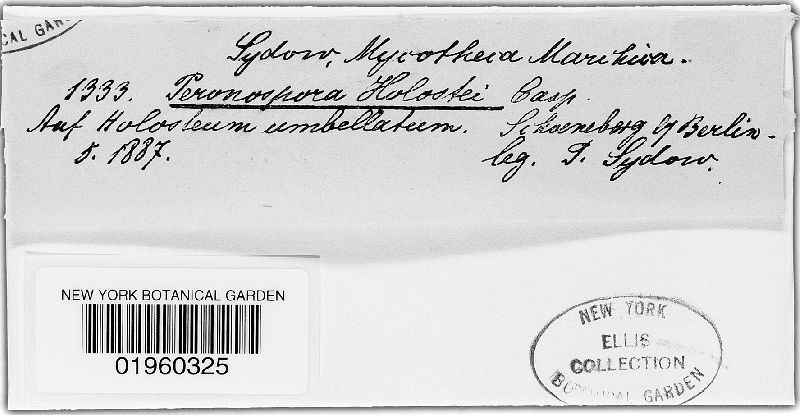 CAL GAR
Sydow, Mycotheca Marchica.
1333. Peronospora Holostei Casp.
Auf Holosteum umbellatum. Schoeneberg b/Berlin.
5. 1887. leg. P. Sydow.
NEW YORK BOTANICAL GARDEN
01960325
NEW YORK
ELLIS
COLLECTION
BOTANICAL GARDEN